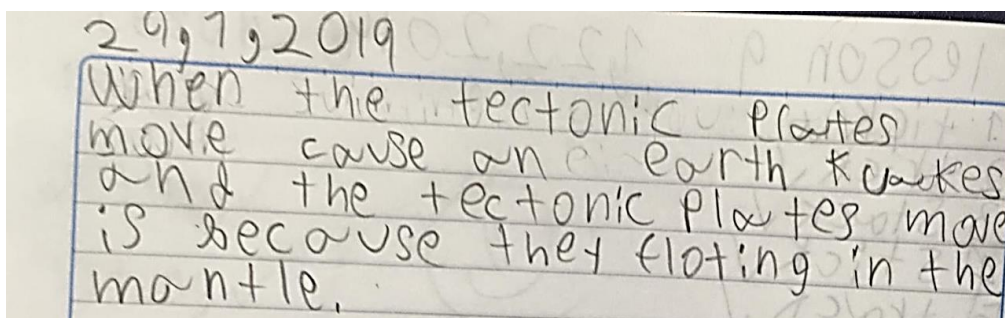 29,1,2019
When the tectonic Plates
move cause an earth kuackes
and the tectonic Plates move
is because they floting in the
mantle.